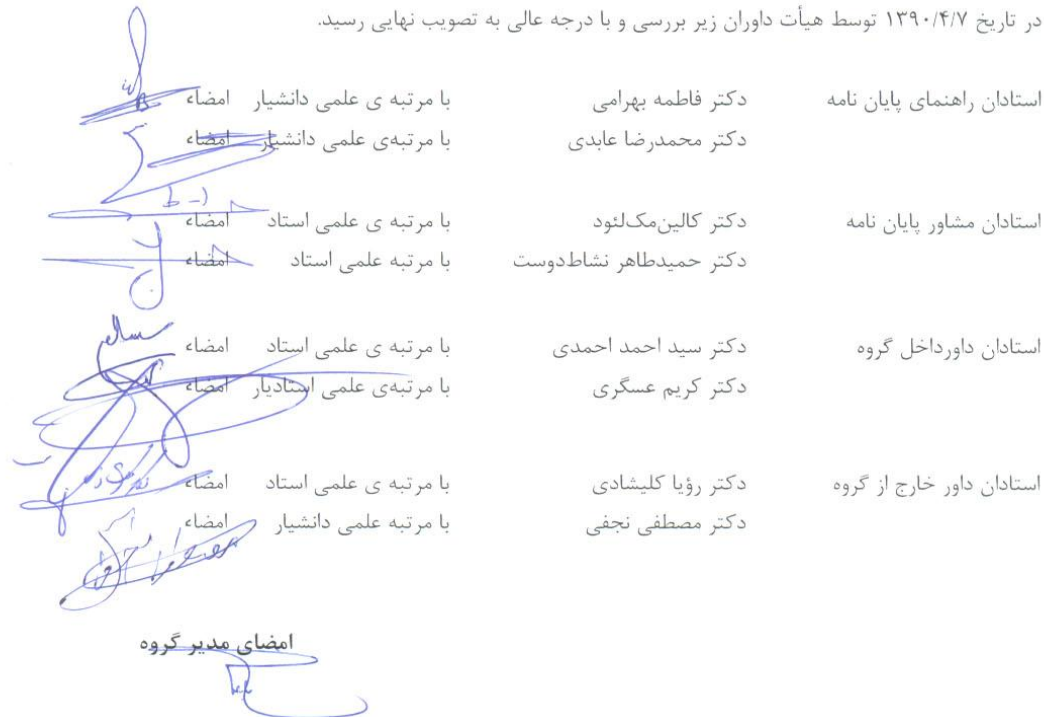 در تاریخ ۱۳۹۰/۴/۷ توسط هیأت داوران زیر بررسی و با درجه عالی به تصویب نهایی رسید.
استادان راهنمای پایان نامه دکتر فاطمه بهرامی با مرتبه ی علمی دانشیار امضاء
دکتر محمدرضا عابدی با مرتبه‌ی علمی دانشیار امضاء
استادان مشاور پایان نامه دکتر کالین‌مک‌لئود با مرتبه ی علمی استاد امضاء
دکتر حمیدطاهر نشاط‌دوست با مرتبه علمی استاد امضاء
استادان داورداخل گروه دکتر سید احمد احمدی با مرتبه ی علمی استاد امضاء
دکتر کریم عسگری با مرتبه‌ی علمی استادیار امضاء
استادان داور خارج از گروه دکتر رؤیا کلیشادی با مرتبه ی علمی استاد امضاء
دکتر مصطفی نجفی با مرتبه علمی دانشیار امضاء
امضای مدیر گروه